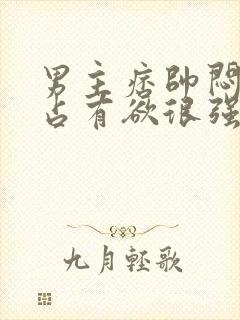 男主痞帅闷
占有欲很强
九月轻歌